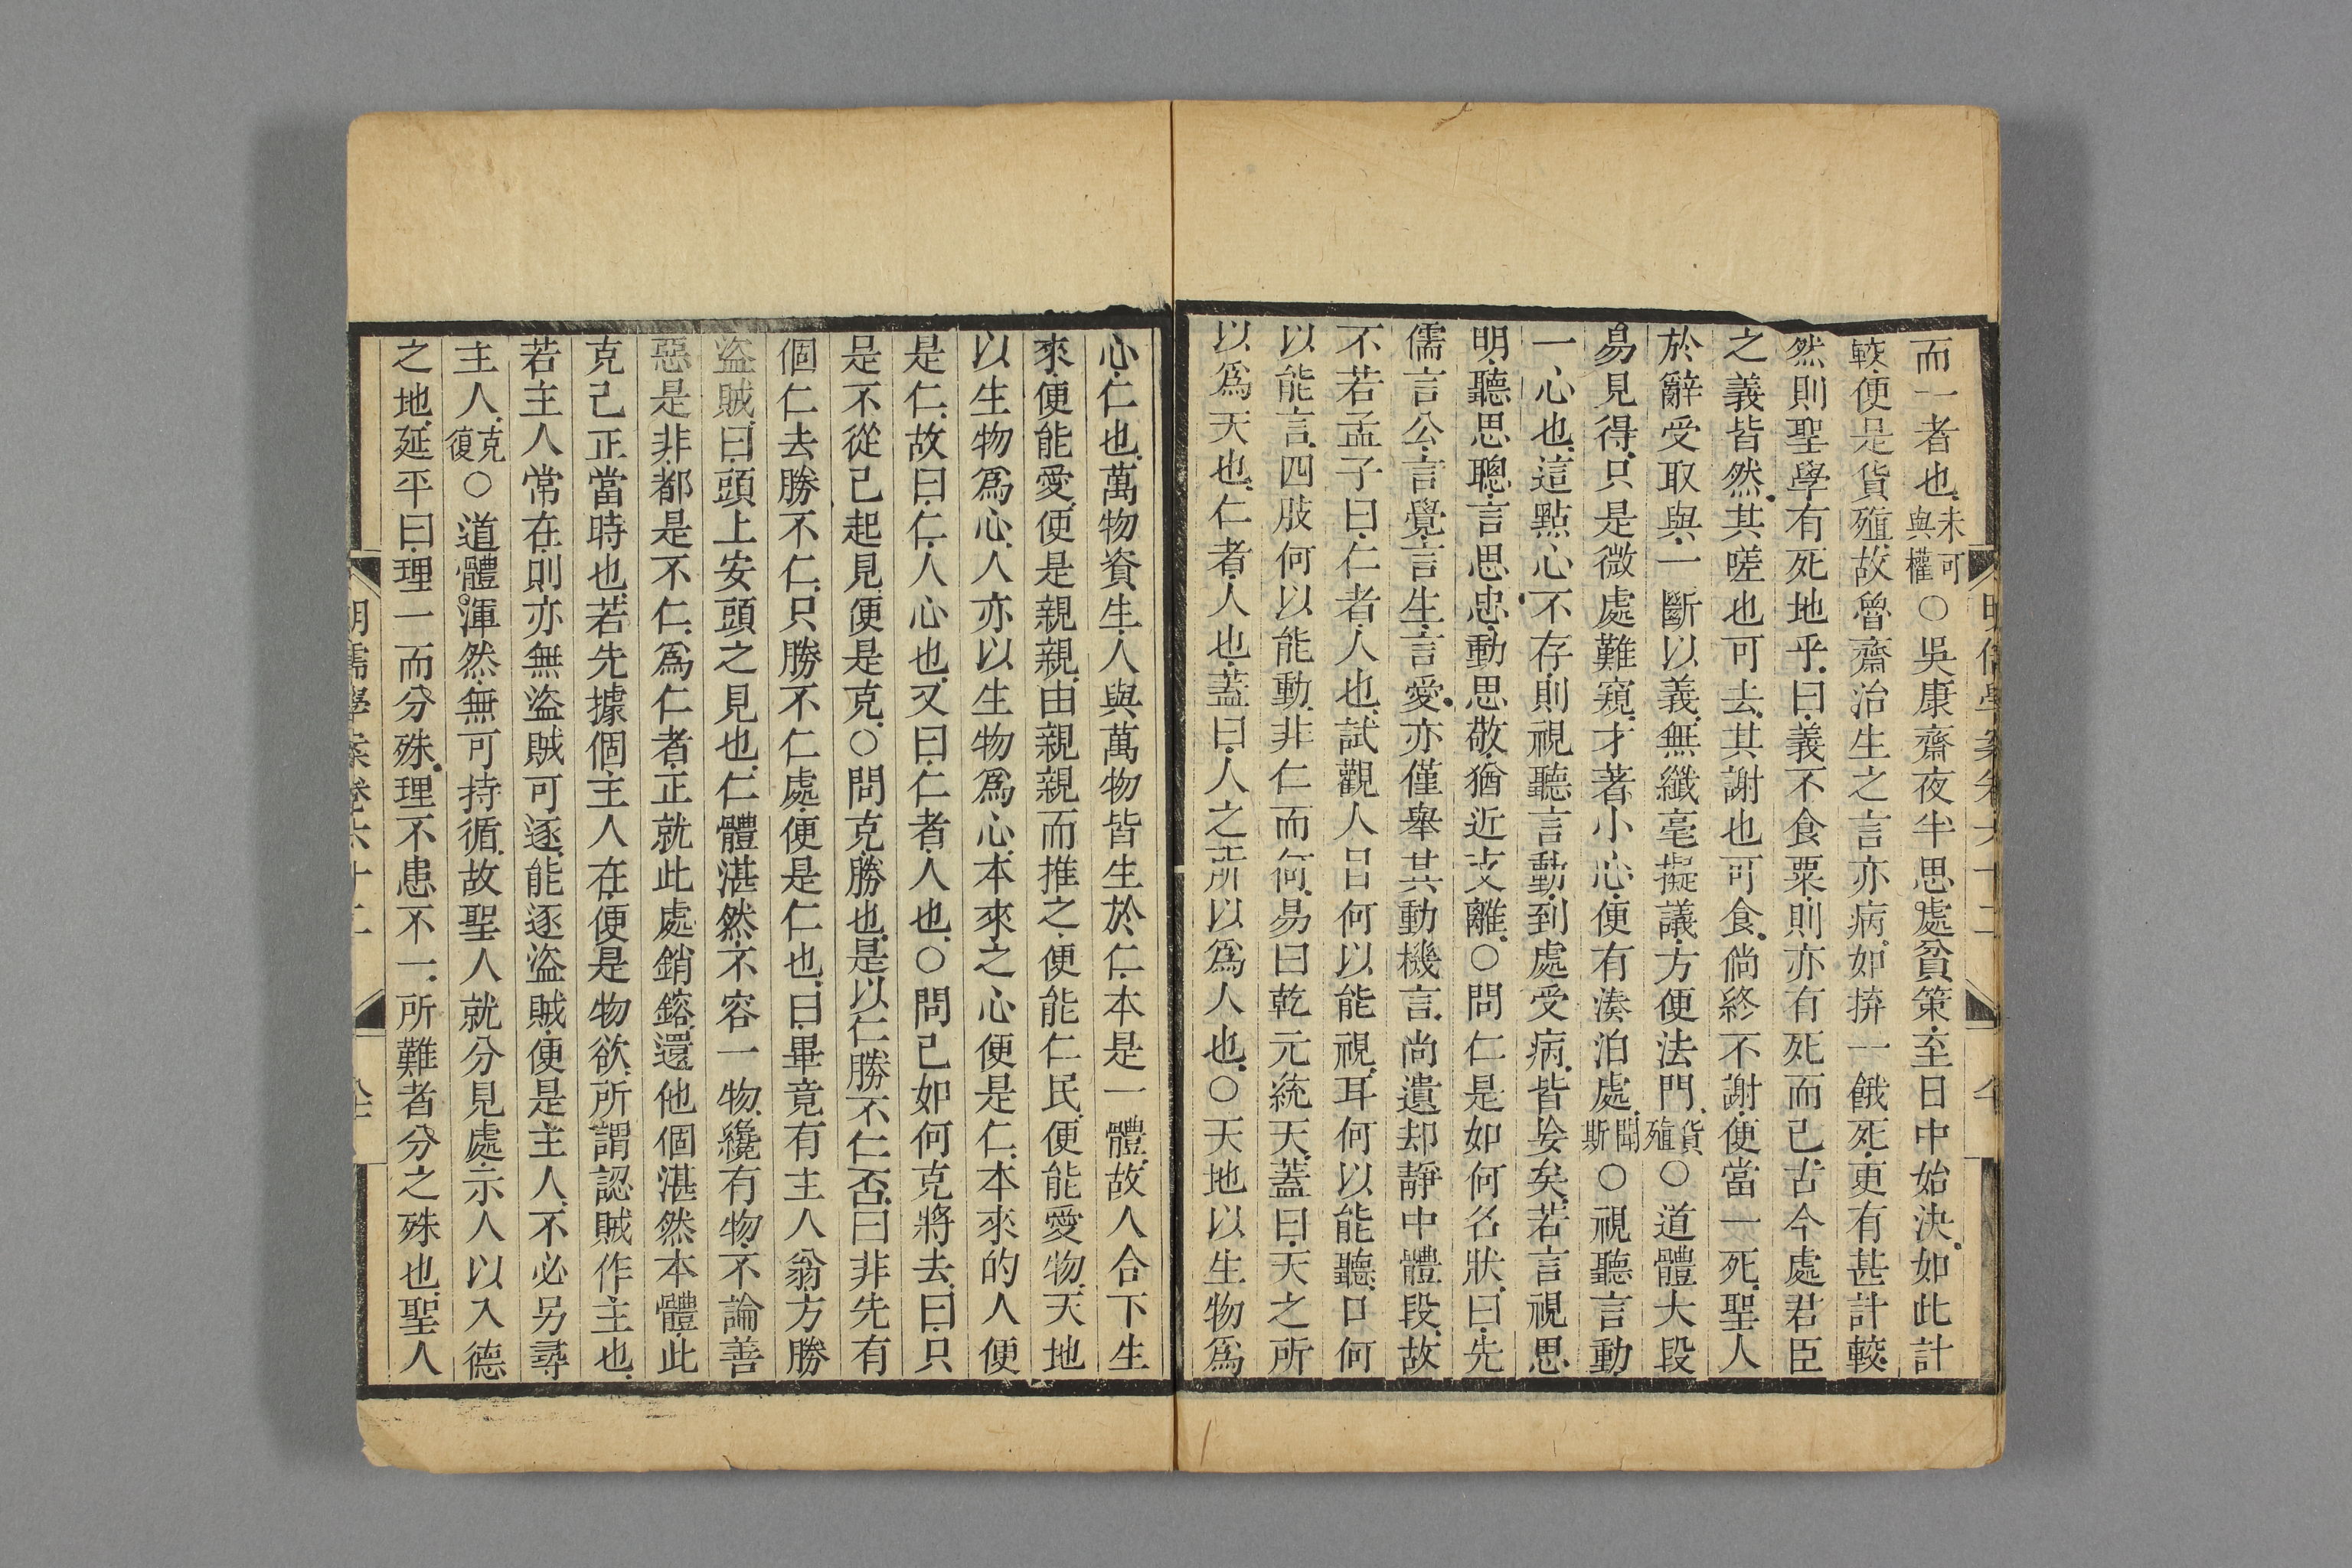 而一者也未可與權○吳康齋夜半思處貧策至日中始決如此計
較便是貨殖故魯齋治生之言亦病如拚一餓死更有甚計較
然則聖學有死地乎曰義不食粟則亦有死而已古今處君臣
之義皆然其嗟也可去其謝也可食倘終不謝便當一死聖人
於辭受取與一斷以義無纖毫擬議方便法門貨殖○道體大段
易見得只是微處難窺才著小心便有湊泊處聞斯○視聽言動
一心也這點心不存則視聽言動到處受病皆妄矣若言視思
明聽思聰言思忠動思敬猶近支離○問仁是如何名狀曰先
儒言公言覺言生言愛亦僅舉其動機言尚遺却靜中體段故
不若孟子曰仁者人也試觀人目何以能視耳何以能聽口何
以能言四肢何以能動非仁而何易曰乾元統天蓋曰天之所
以爲天也仁者人也蓋曰人之所以爲人也○天地以生物爲
心仁也萬物資生人與萬物皆生於仁本是一體故人合下生
來便能愛便是親親由親親而推之便能仁民便能愛物天地
以生物爲心人亦以生物爲心本來之心便是仁本來的人便
是仁故曰仁人心也又曰仁者人也○問己如何克將去曰只
是不從己起見便是克○問克勝也是以仁勝不仁否曰非先有
個仁去勝不仁只勝不仁處便是仁也曰畢竟有主人翁方勝
盜賊曰頭上安頭之見也仁體湛然不容一物纔有物不論善
惡是非都是不仁爲仁者正就此處銷鎔還他個湛然本體此
克己正當時也若先據個主人在便是物欲所謂認賊作主也
若主人常在則亦無盜賊可逐能逐盜賊便是主人不必另尋
主人克復○道體渾然無可持循故聖人就分見處示人以入德
之地延平曰理一而分殊理不患不一所難者分之殊也聖人
明儒學案卷六十二